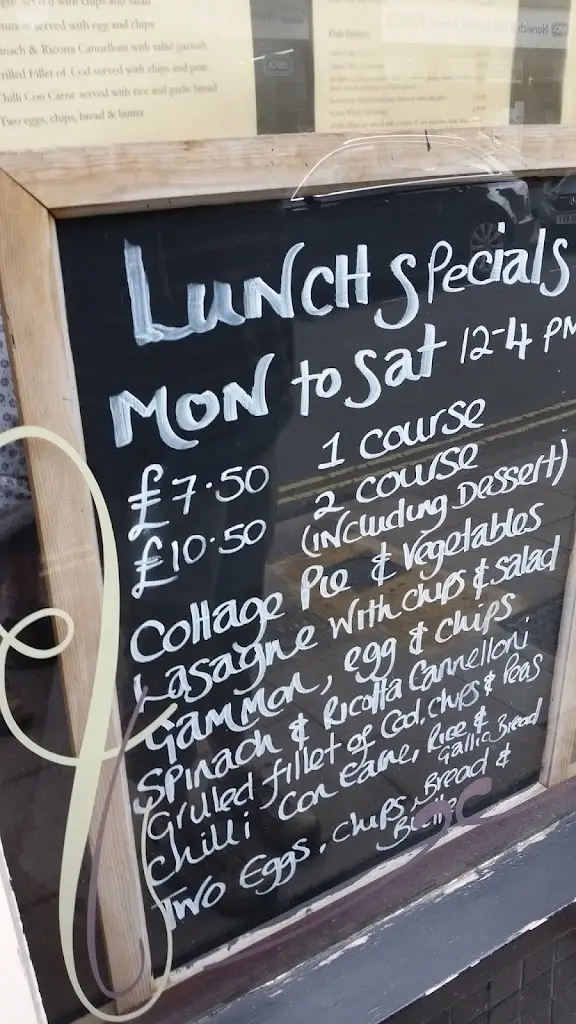 served with chips and salad
served with egg and chips
& Ricotta Cannelloni with salad garnish
Fillet of Cod served with chips and peas
Chilli Con Carne served with rice and garlic bread
Two eggs, chips, bread & butter
LUNCH SPecialS
MON to Sat 12-4 PM
£7.50 1 course
£10.50 2 course
(including Dessert)
Cottage Pie & Vegetables
Lasagne With chips & Salad
Gammon, egg & chips
SPinach & Ricotta Cannelloni
Grilled fillet of Cod, chips & Peas
chilli con Carne, Rice &
Garlic Bread
Two Eggs, chips, Bread &
Butter